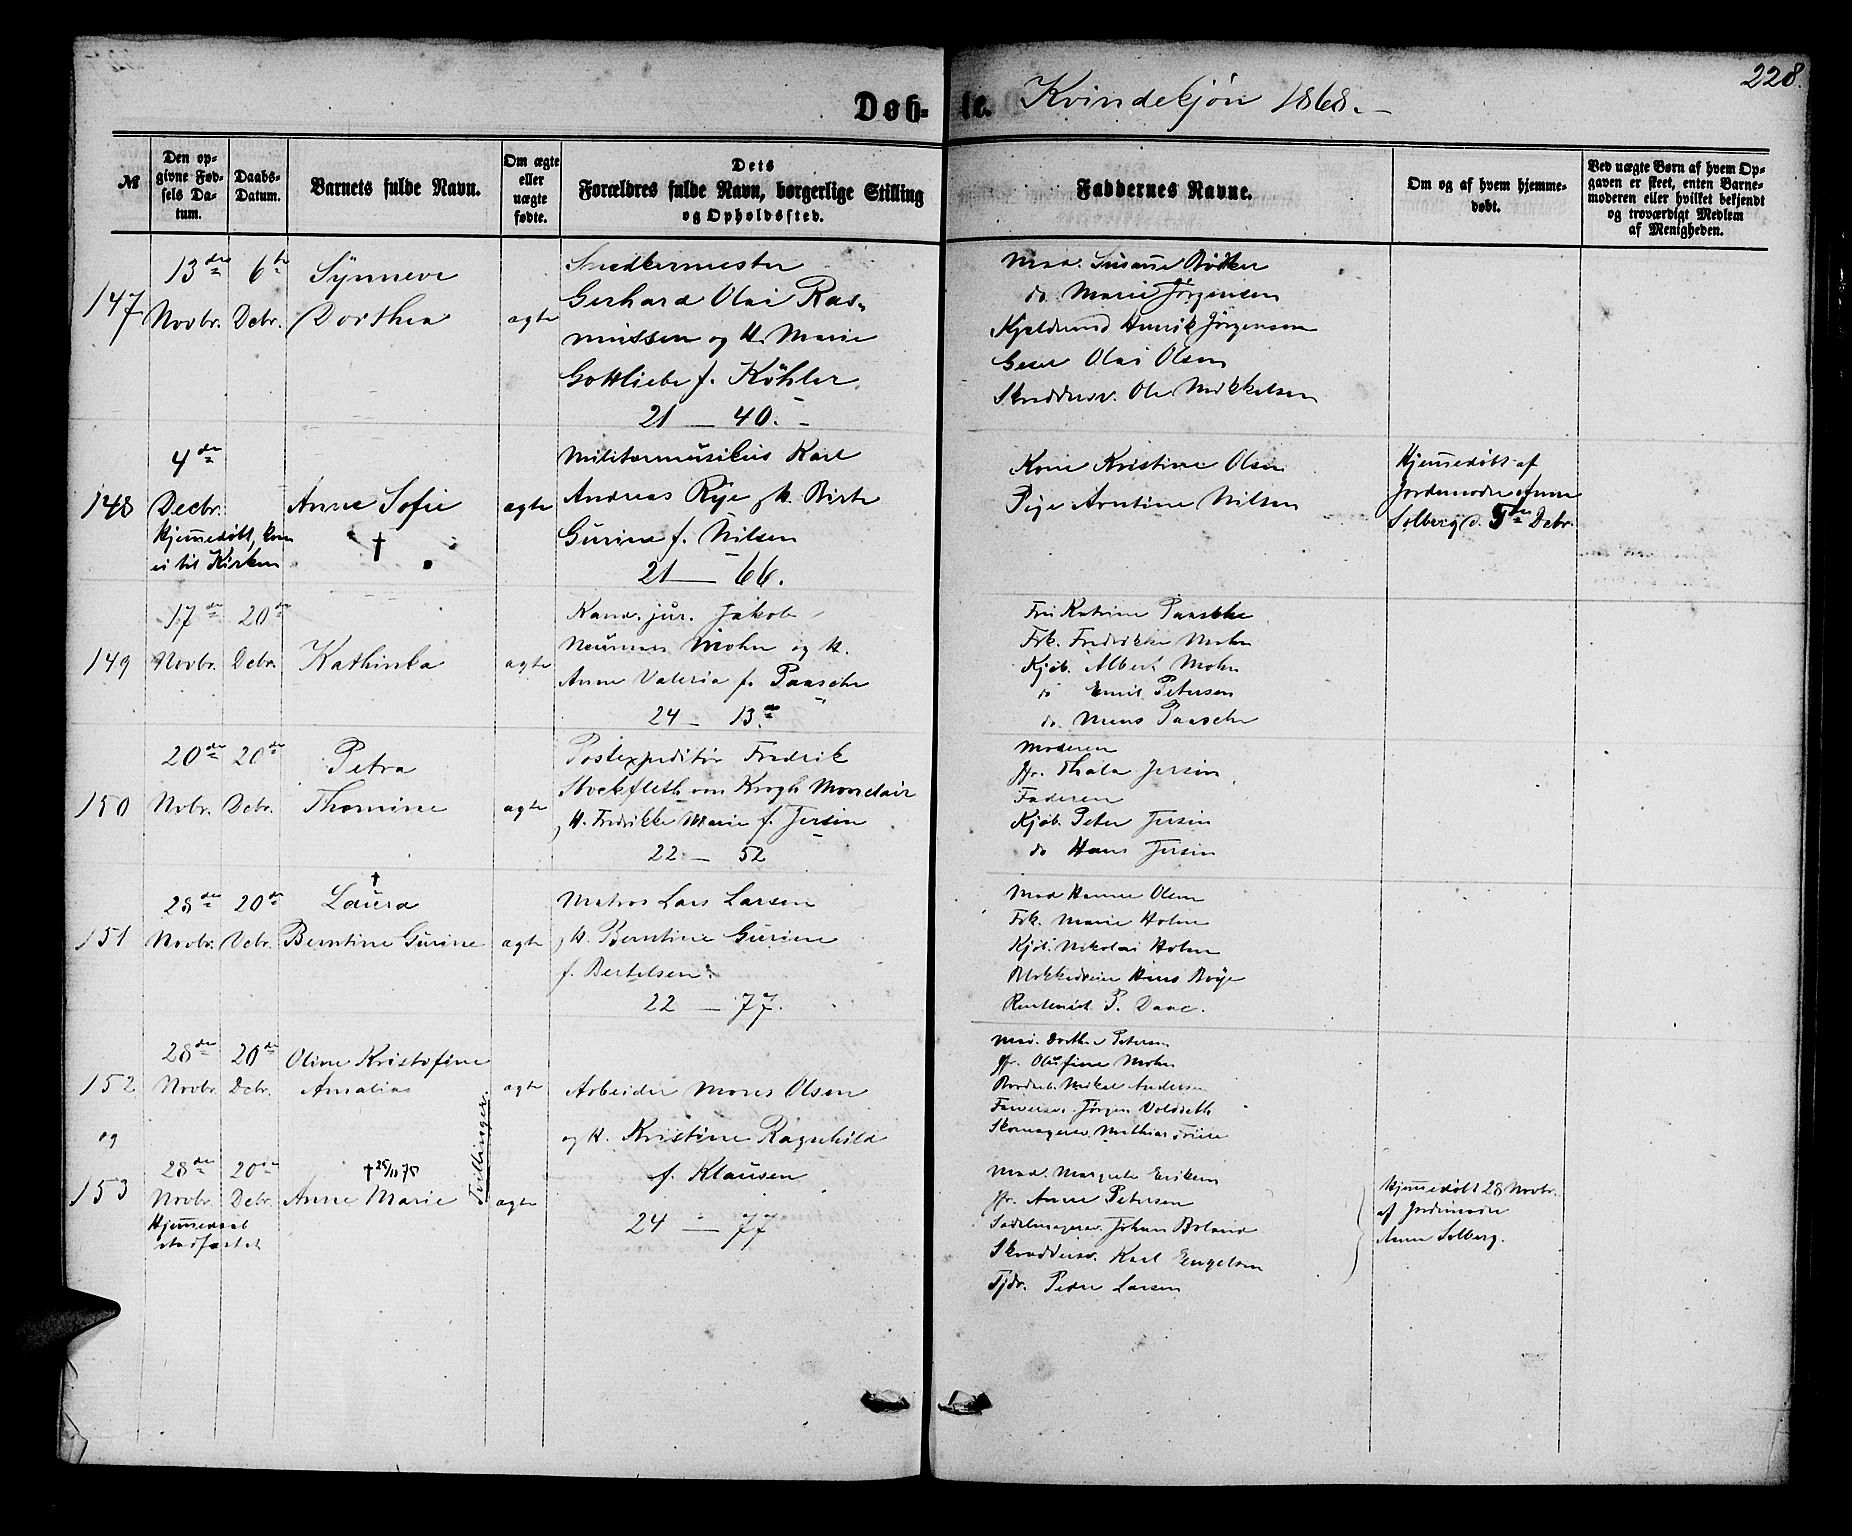 228.
Døb- te. Kvindekjøn 1868.
№
Den op-
givne Fød-
sels Da-
tum.
Daabs-
Datum.
Barnets fulde Navn.
Om ægte
eller
uægte
fødte.
Dets
Forældres fulde Navn, borgerlige Stilling
og Opholdssted.
Faddernes Navne.
Om og af hvem hjemme-
døbt.
Ved uægte Børn af hvem Op-
gaven er skeet, enten Barne-
moderen eller hvilket bekjendt
og troværdigt Medlem
af Menigheden.
147
13de
Novbr.
6te
Debr.
Synneve
Dorthea
ægte
Snedkermester
Gerhard Olai Ras-
mussen og H. Marie
Gottliebe f. Köhler
21 — 40.
Mad. Susanne Bødker
do Marie Jørgensen
Henrik Jørgensen
Olai Olsen
Skrædersv. Ole Mikkelsen
148
4de
Decbr.
Hjemmedøbt, kom
ei til Kirken
Anne Sofie
†
ægte
Militærmusikus Karl
Andreas Rye og H. Birte
Gurine f. Nilsen
21 — 66.
Kone Kristine Olsen
Pige Arntine Nilsen
Hjemmedøbt af
Jordemoder Anne
Solberg d. 5te Debr.
149
17de
Novbr.
20de
Debr.
Kathinka
ægte
Kand. jur. Jakob
Neumann Mohn og H.
Anne Valeria f. Paasche
24 — 13.
Fru Katrine Paasche
Frk. Fredrikke Mohn
Kjøb. Albert Mohn
do Emil Petersen
do Mons Paasche
150
20de
Novbr.
20de
Debr.
Petra
Thomine
ægte
Postexpeditør Fredrik
Stockfleth von Krogh Monclair
og H. Fredrikke Marie f. Jersin
22 — 52
Moderen
Jfr. Thala Jersin
Faderen
Kjøb. Peter Jersin
do Hans Jersin
151
28de
Novbr.
20de
Debr.
†
Laura
Berntine Gurine
ægte
Matros Lars Larsen
og H. Berntine Gurine
f. Bertelsen
22 — 77.
Mad Hanne Olsen
Frk. Marie Holm
Kjøb. Nikolai Holm
Blokkedreier Hans Bøye
P. Daae.
152
28de
Novbr.
20de
Debr.
Oline Kristofine
Amalia
ægte
Arbeider Mons Olsen
og H. Kristine Ragnhild
f. Klausen
24 — 77
Mad. Dorthea Petersen
Jfr. Olufine Mohn
Mikal Andersen
Jørgen Voldseth
Skomagersv. Mathias Friis
og
Tvillinger.
153
28de
Novbr.
20de
Debr.
Hjemmedaab
stadfæstet
†25/11 75
Anne Marie
ægte
Mad. Margrete Eriksen
Jfr. Anne Petersen
Sadelmagersv. Johan Boland
Skræddersv. Karl Engelsen
Tjdr. Peder Larsen
Hjemmedøbt 28 Novbr.
af Jordemoder
Anne Solberg.